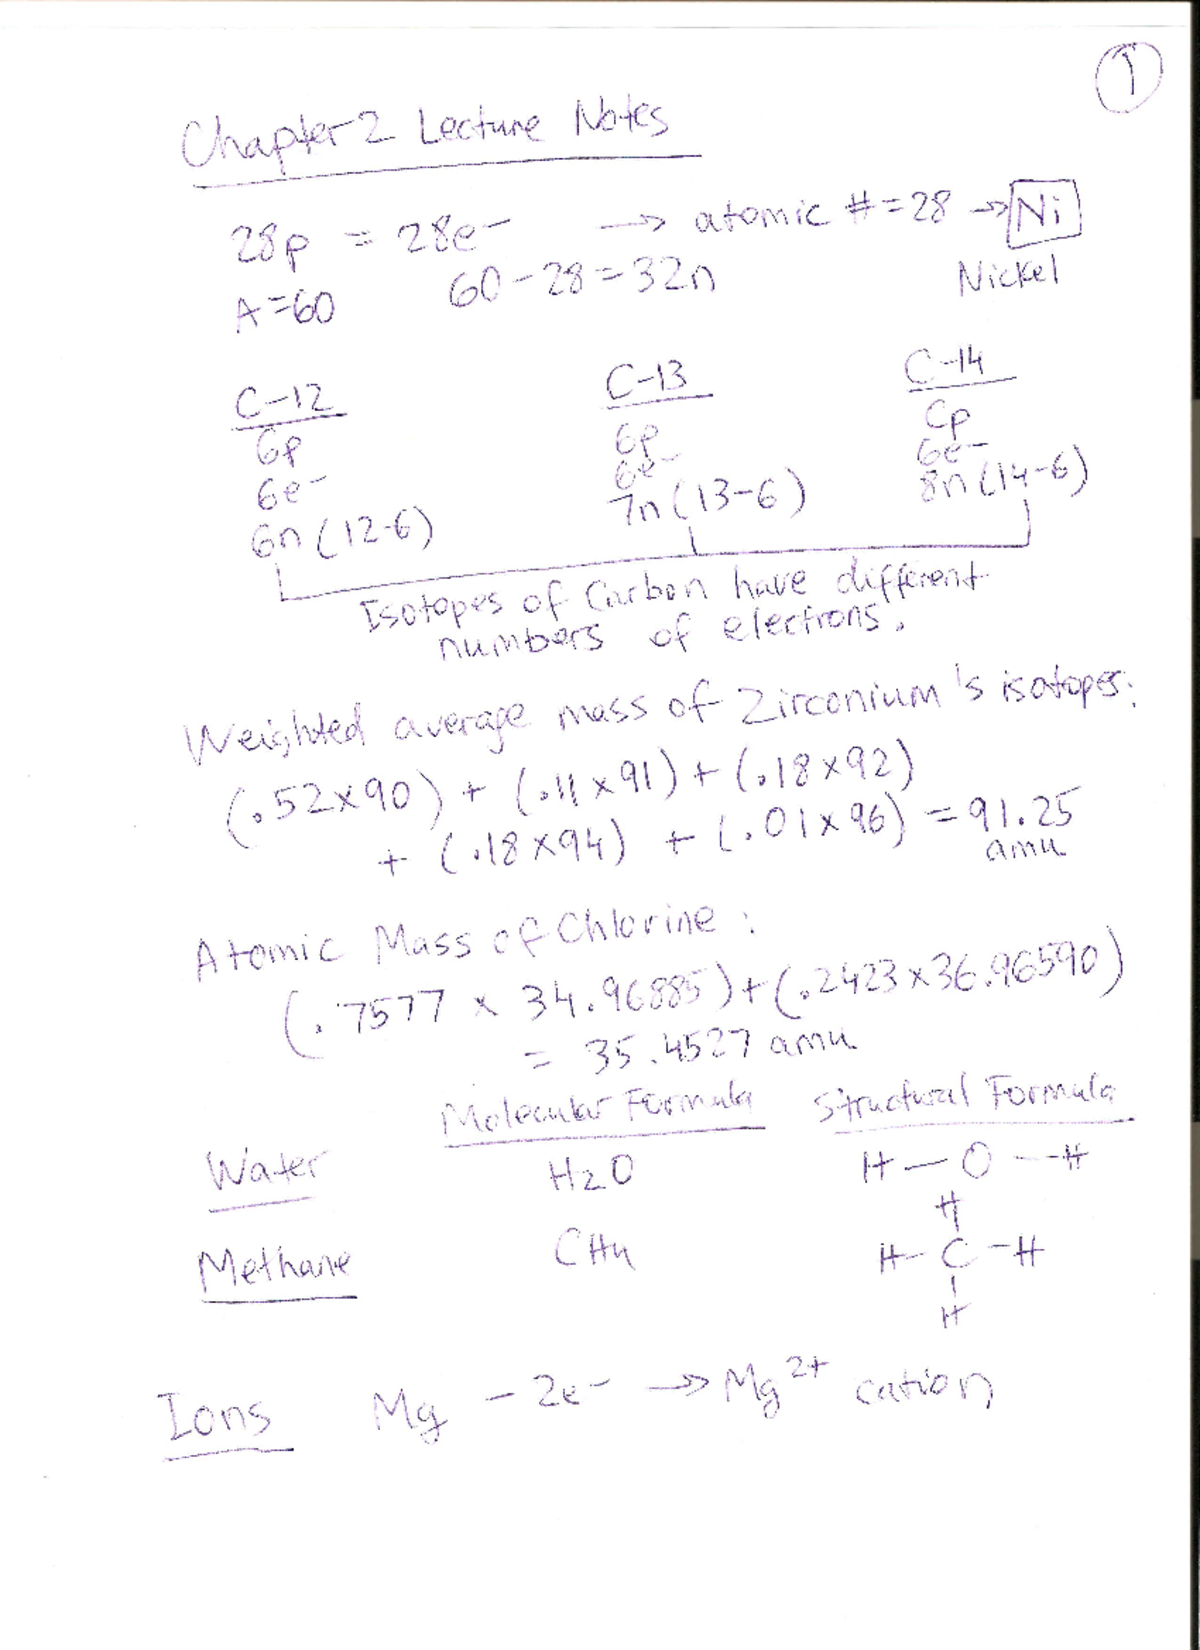 1
Chapter 2 Lecture Notes
28p = 28e- → atomic # = 28 → Ni
A = 60 60 - 28 = 32n Nickel
C-12 C-13 C-14
6p 6p Cp
6e- 6e- 6e-
6n (12-6) 7n (13-6) 8n (14-6)
Isotopes of Carbon have different
numbers of electrons.
Weighted average mass of Zirconium's isotopes:
(.52 x 90) + (.11 x 91) + (.18 x 92)
+ (.18 x 94) + (.01 x 96) = 91.25
amu
Atomic Mass of Chlorine:
(.7577 x 34.96885) + (.2423 x 36.96590)
= 35.4527 amu
Molecular Formula Structural Formula
Water H2O H — O — H
H
Methane CH4 H - C - H
H
Ions Mg - 2e- → Mg2+ cation